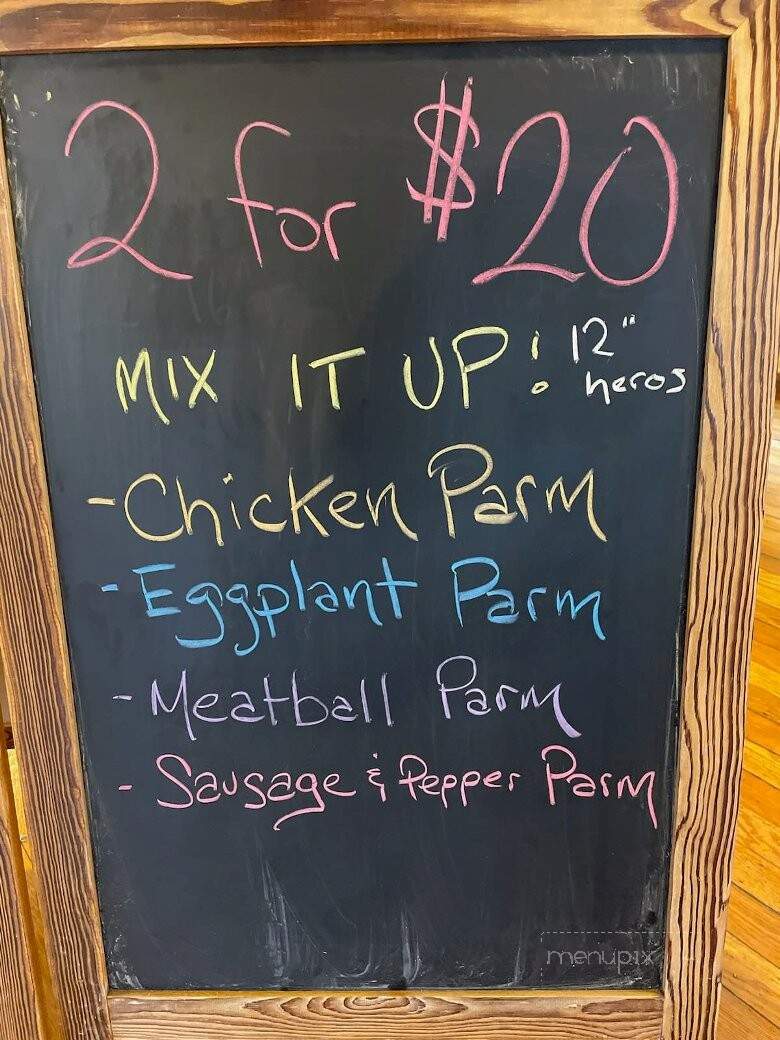 2 for $20
MIX IT UP! 12"
heros
- Chicken Parm
- Eggplant Parm
- Meatball Parm
- Sausage & Pepper Parm
menupix